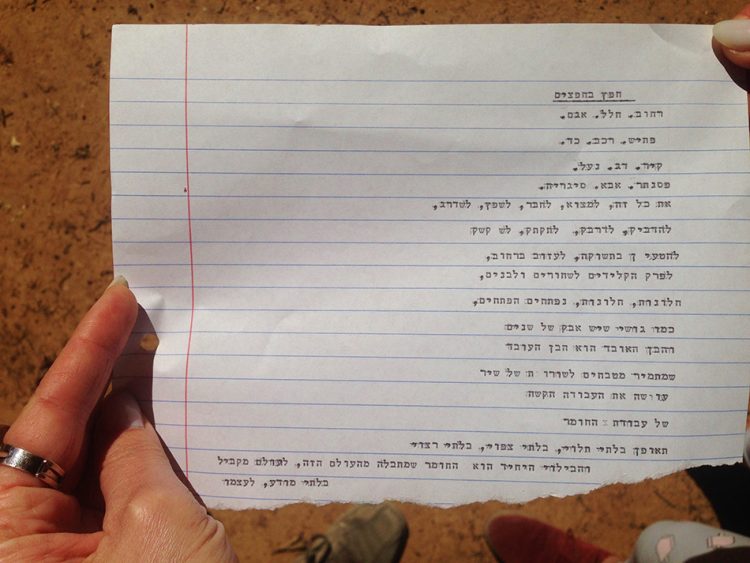 חפץ בחפצים
רחוב. חלל. אגם.
פטיש. רכב. כד.
קיר. דג. נעל.
פסנתר. אבא. סיגריה.
את כל זה, למצוא, לחבר, לשפץ, לשדרג,
להדביק, לדרבק, לתקתק, לש קשק
להטעי ן בתשוקה, לעזוב ברחוב,
לפרק הקלידים לשחורים ולבנים,
חלונות, חלונות, נפתחים הפתחים,
כמו גושי שיש אבק של שנים
והבן האובד הוא הבן העובד
שמתמיר מטבחים לשורו ת של שיר
עו שה את העבודה הקשה
של עבודת החומר
תאופן בלתי תלוי, בלתי צפוי, בלתי רצוי
והבילוי היחיד הוא החומר שמתבלה מהעולם הזה, לעולם מקביל
בלתי מודע, לעצמו